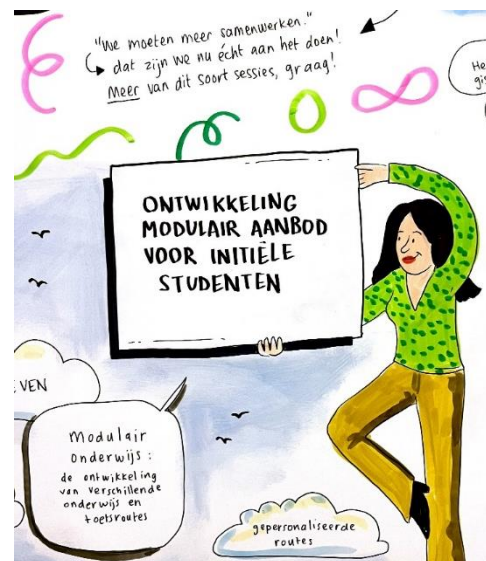 "We moeten meer samenwerken."
dat zijn we nu écht aan het doen!
Meer van dit soort sessies, graag!
He
gi
ONTWIKKELING
MODULAIR AANBOD
VOOR INITIËLE
STUDENTEN
VEN
Modulair
onderwijs:
de ontwikkeling
van verschillende
onderwijs en
toetsroutes
gepersonaliseerde
routes